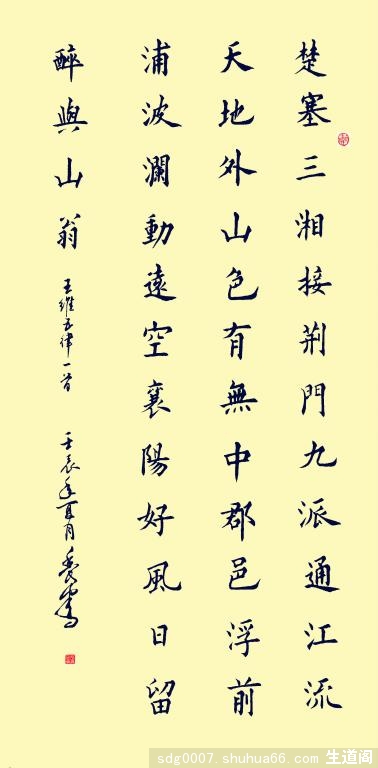 楚塞三湘接荆門九派通江流
天地外山色有無中郡邑浮前
浦波瀾動遠空襄陽好風日留
醉與山翁 王維五律一首 壬辰年夏月
sdg0007.shuhua66.com 生道阁